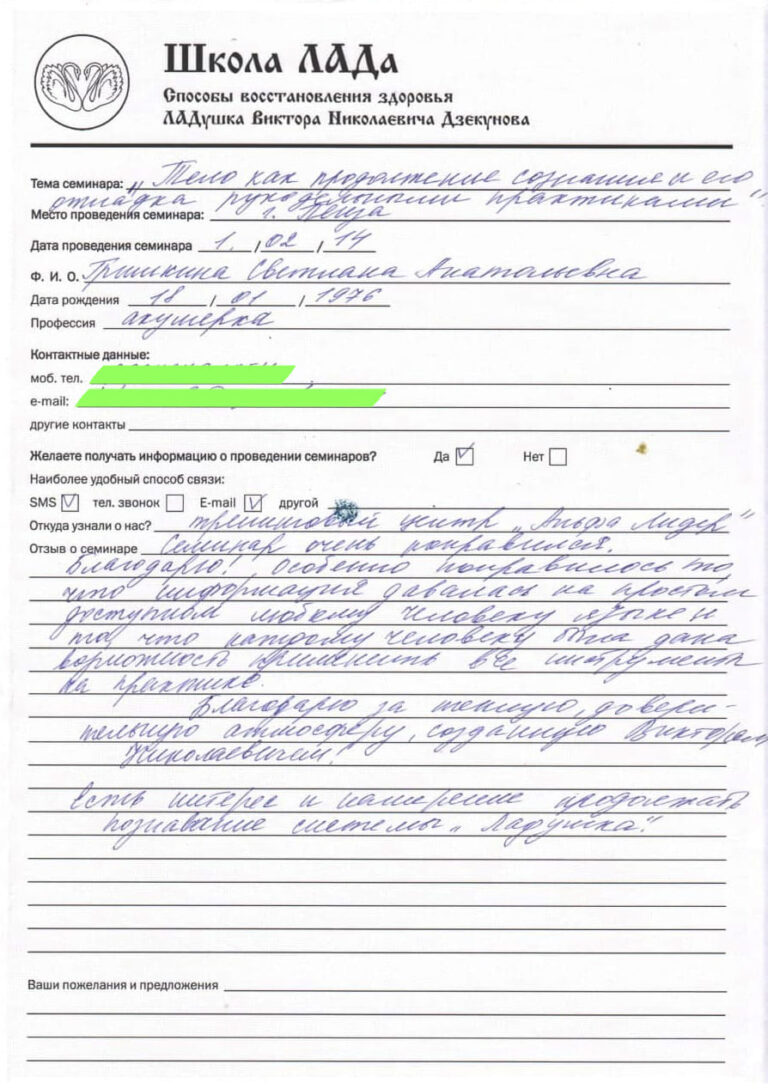 Школа ЛАДа
Способы восстановления здоровья
ЛАДушка Виктора Николаевича Дзекунова
Тема семинара: „Тело как продолжение сознания и его
отладка рукодельными практиками"
Место проведения семинара: г. Пенза
Дата проведения семинара 1. / 02 / 14
Ф. И. О. Гришкина Светлана Анатольевна
Дата рождения 18 / 01 / 1976
Профессия акушерка
Контактные данные:
моб. тел.
e-mail:
другие контакты
Желаете получать информацию о проведении семинаров? Да Нет
Наиболее удобный способ связи:
SMS тел. звонок E-mail другой
Откуда узнали о нас? тренинговый центр „Альфа Лидер"
Отзыв о семинаре Семинар очень понравился.
Благодарю! Особенно понравилось то,
что информация давалась на простом
доступном любому человеку языке и
то, что каждому человеку была дана
возможность применить все инструменты
на практике.
Благодарю за теплую, довери-
тельную атмосферу, созданную Виктором
Николаевичем!
Есть интерес и намерение продолжать
познавание системы „Ладушка".
Ваши пожелания и предложения